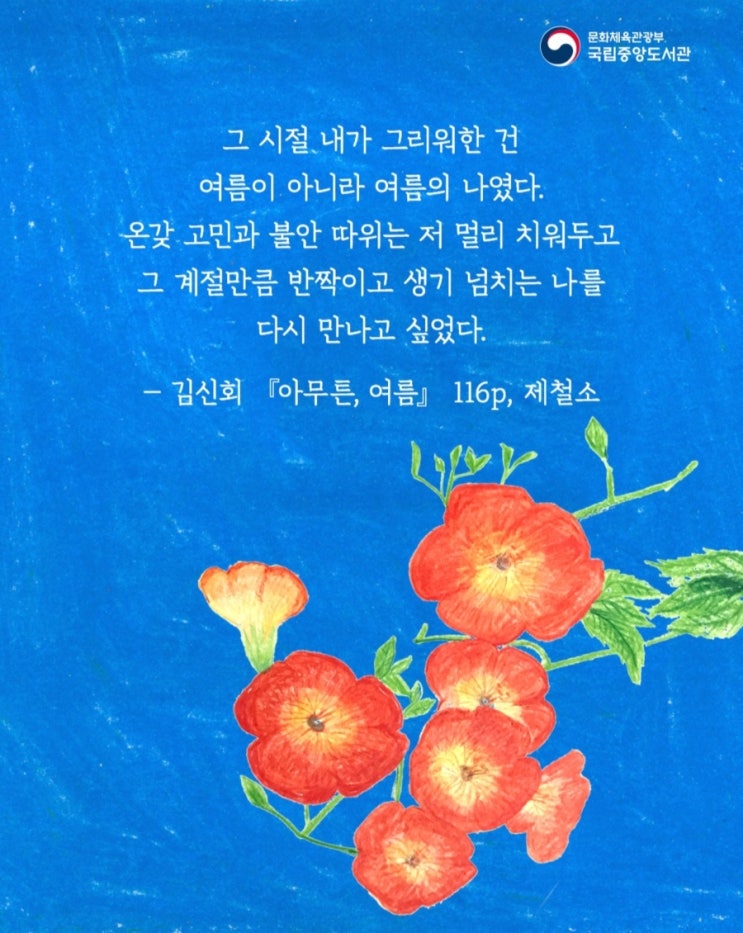 문화체육관광부
국립중앙도서관
그 시절 내가 그리워한 건
여름이 아니라 여름의 나였다.
온갖 고민과 불안 따위는 저 멀리 치워두고
그 계절만큼 반짝이고 생기 넘치는 나를
다시 만나고 싶었다.
– 김신회 『아무튼, 여름』 116p, 제철소